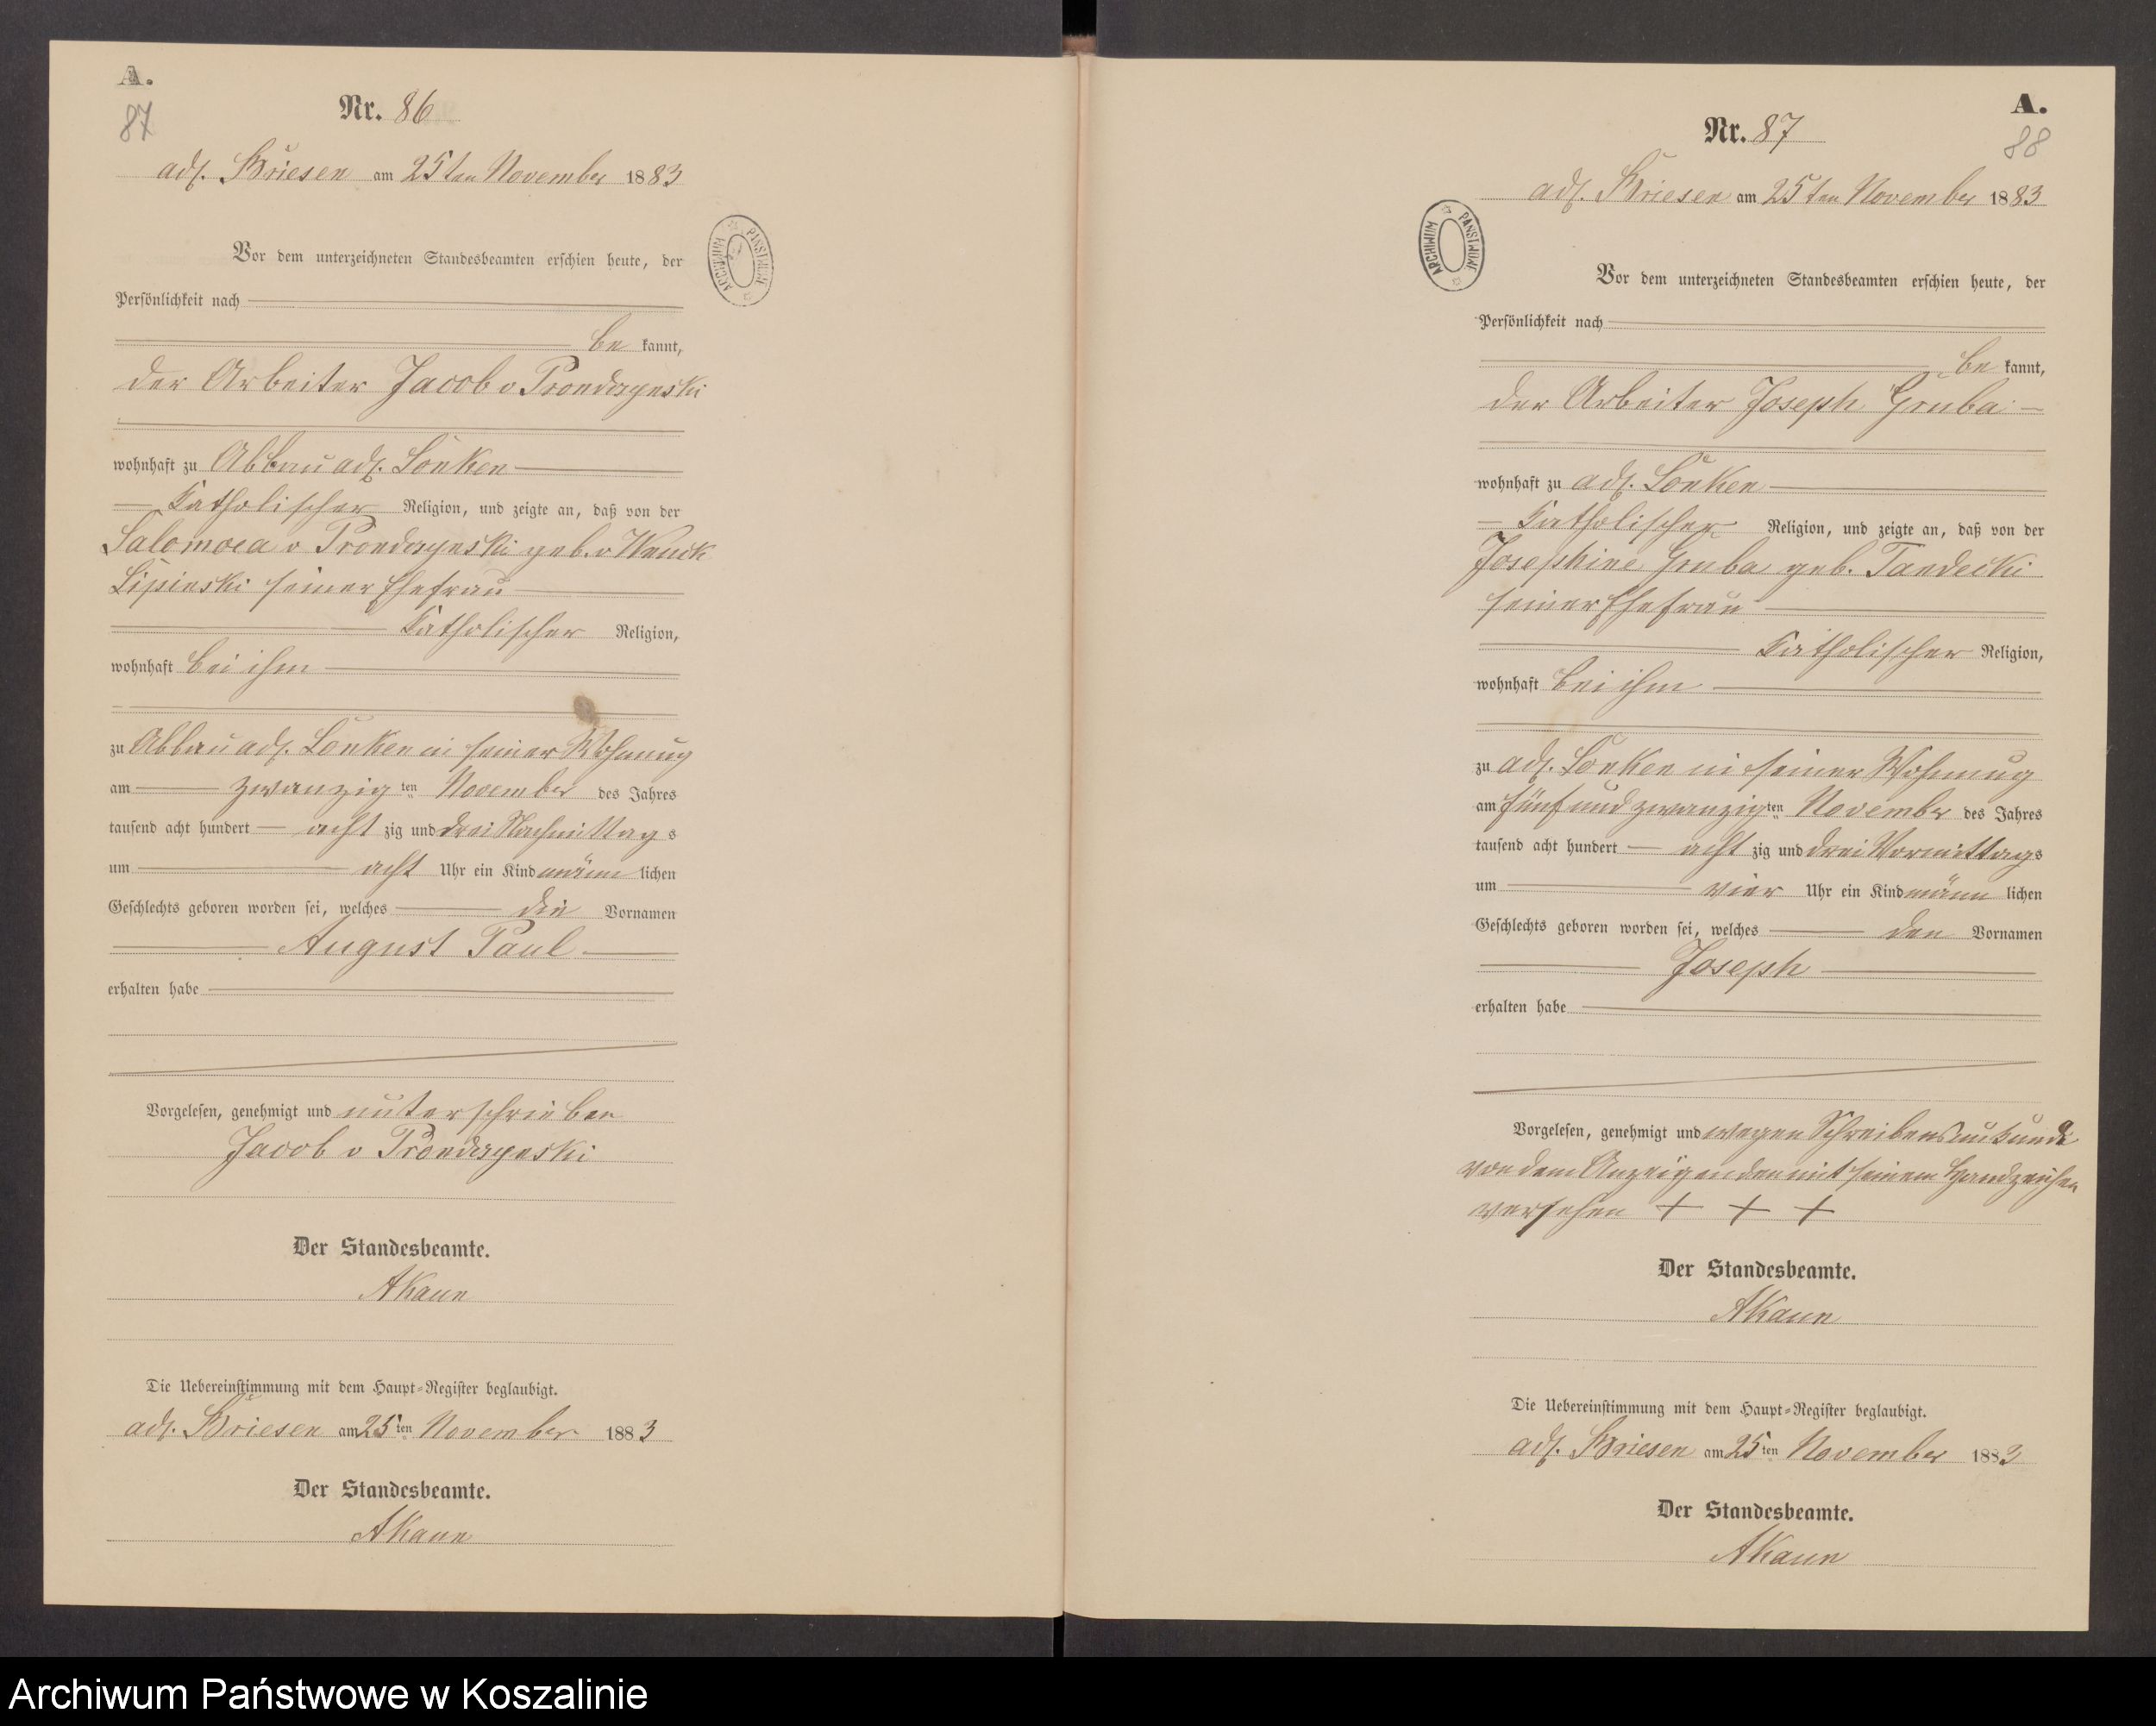 A.
87
Nr. 86
adl. Briesen am 25ten November 1883
ARCHIWUM PAŃSTWOWE
Vor dem unterzeichneten Standesbeamten erschien heute, der
Persönlichkeit nach
be kannt,
der Arbeiter Jacob v Prondzynski
wohnhaft zu Abbau adl. Lonken
Katholischer Religion, und zeigte an, daß von der
Salomoea v Prondzynski geb. v Wnuck
Lipinski seiner Ehefrau
Katholischer Religion,
wohnhaft bei ihm
zu Abbau adl. Lonken in seiner Wohnung
am zwanzig ten November des Jahres
tausend acht hundert acht zig und drei Nachmittags
um acht Uhr ein Kind männ lichen
Geschlechts geboren worden sei, welches die Vornamen
August Paul
erhalten habe
Vorgelesen, genehmigt und unterschrieben
Jacob v Prondzynski
Der Standesbeamte.
AKaun
Die Uebereinstimmung mit dem Haupt-Register beglaubigt.
adl. Briesen am 25ten November 1883
Der Standesbeamte.
AKaun
A.
88
Nr. 87
adl. Briesen am 25ten November 1883
ARCHIWUM PAŃSTWOWE
Vor dem unterzeichneten Standesbeamten erschien heute, der
Persönlichkeit nach
be kannt,
der Arbeiter Joseph Gruba
wohnhaft zu adl. Lonken
Katholischer Religion, und zeigte an, daß von der
Josephine Gruba geb. Tandecki
seiner Ehefrau
Katholischer Religion,
wohnhaft bei ihm
zu adl. Lonken in seiner Wohnung
am fünfundzwanzig ten November des Jahres
tausend acht hundert acht zig und drei Vormittags
um vier Uhr ein Kind männ lichen
Geschlechts geboren worden sei, welches den Vornamen
Joseph
erhalten habe
Vorgelesen, genehmigt und wegen Schreibensunkunde
von dem Anzeigenden mit seinem Handzeichen
versehen + + +
Der Standesbeamte.
AKaun
Die Uebereinstimmung mit dem Haupt-Register beglaubigt.
adl. Briesen am 25ten November 1883
Der Standesbeamte.
AKaun
Archiwum Państwowe w Koszalinie